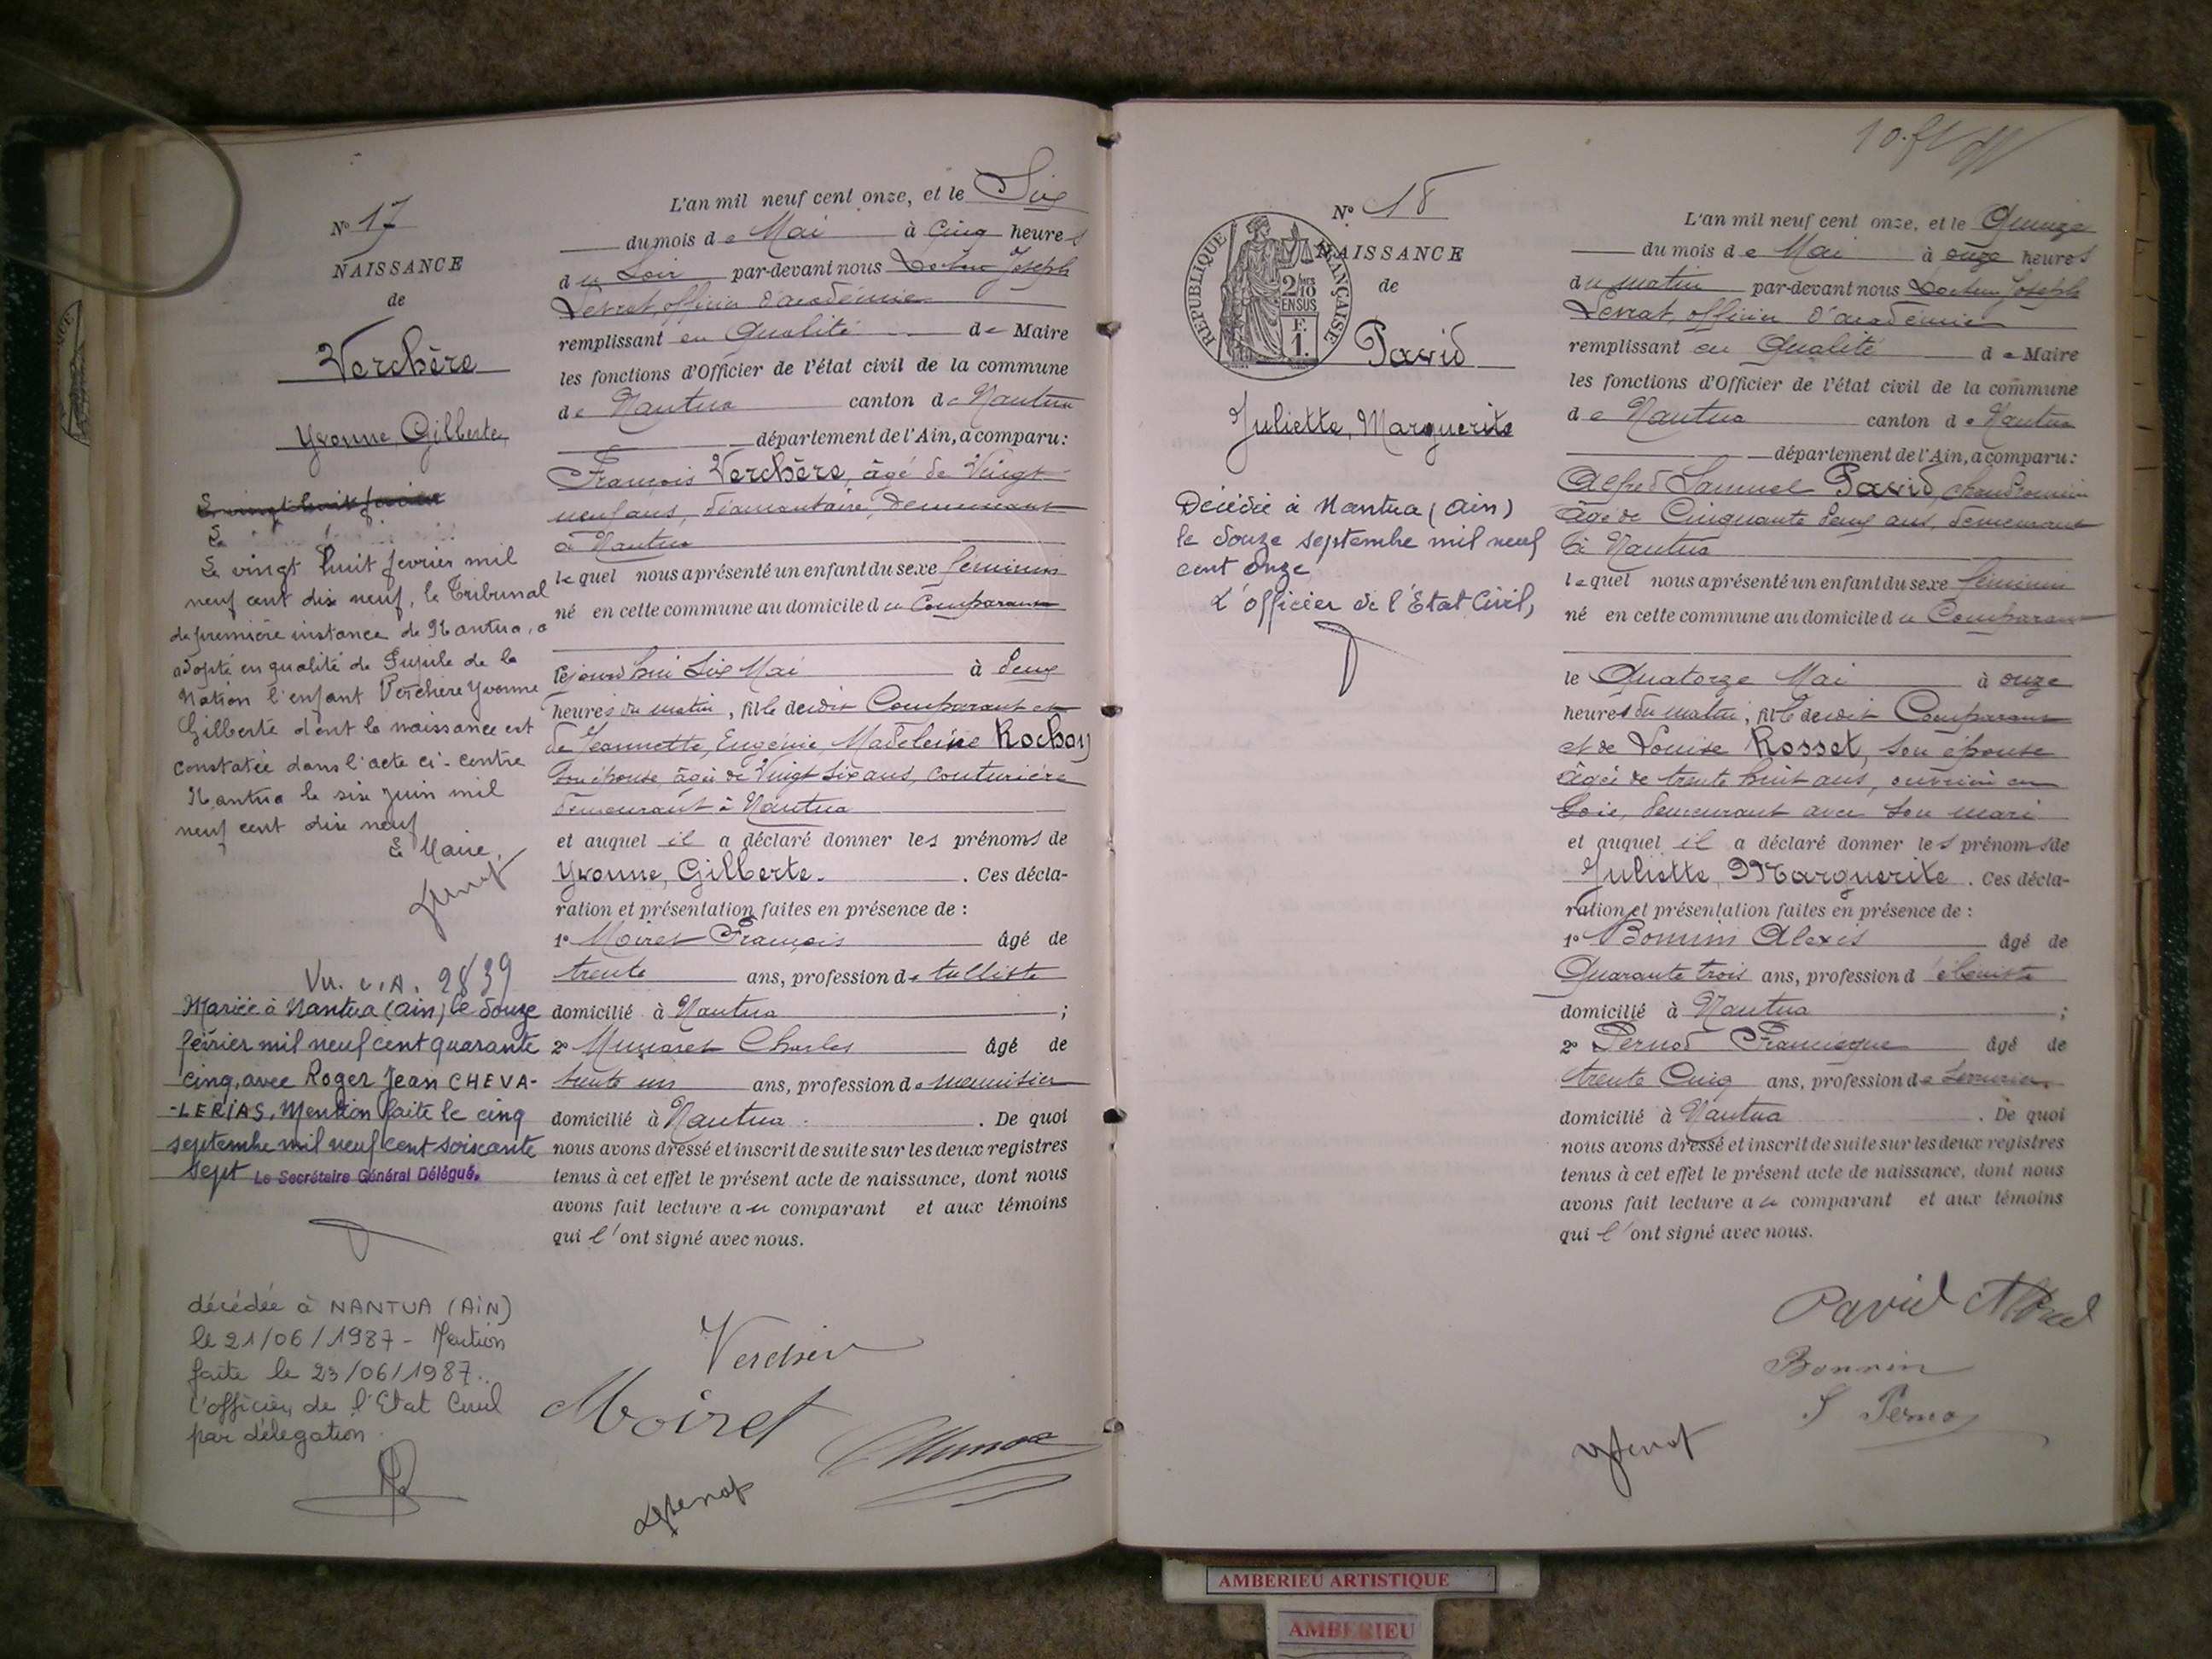 N° 17
NAISSANCE
de
Verchère
Yvonne, Gilberte
Le vingt huit février
Le
Le vingt huit février mil
neuf cent dix neuf, le Tribunal
de première instance de Nantua, a
adopté en qualité de Pupile de la
Nation l'enfant Verchère Yvonne
Gilberte dont la naissance est
constatée dans l'acte ci-contre
Nantua le six juin mil
neuf cent dix neuf
Le Maire,
Vu. 2839
Mariée à Nantua (Ain) le douze
février mil neuf cent quarante
cinq, avec Roger Jean CHEVA-
-LERIAS, Mention faite le cinq
septembre mil neuf cent soixante
sept Le Secrétaire Général Délégué,
décédée à NANTUA (AiN)
le 21/06/1987 - Mention
faite le 23/06/1987.
L'officier de l'Etat Civil
par délégation.
L'an mil neuf cent onze, et le Six
du mois de Mai à Cinq heures
du Soir par-devant nous Docteur Joseph
Levrat, officier d'académie
remplissant en Qualité de Maire
les fonctions d'Officier de l'état civil de la commune
de Nantua canton de Nantua
département de l'Ain, a comparu:
François Verchère, âgé de Vingt
neuf ans, diamantaire, demeurant
à Nantua
lequel nous a présenté un enfant du sexe féminin
né en cette commune au domicile du Comparant
cejourd'hui Six Mai à deux
heures du matin, fille dudit Comparant et
de Jeannette, Eugénie, Madeleine Rochay
son épouse, âgée de Vingt Six ans, couturière
demeurant à Nantua
et auquel il a déclaré donner les prénoms de
Yvonne, Gilberte. . Ces décla-
ration et présentation faites en présence de :
1° Moiret François âgé de
trente ans, profession de tulliste
domicilié à Nantua ;
2° Munaret Charles âgé de
trente un ans, profession de menuisier
domicilié à Nantua . De quoi
nous avons dressé et inscrit de suite sur les deux registres
tenus à cet effet le présent acte de naissance, dont nous
avons fait lecture au comparant et aux témoins
qui l'ont signé avec nous.
Verchère
Moiret
N° 18
NAISSANCE
de
REPUBLIQUE FRANÇAISE
2/10 EN SUS
F.
1.
Pavid
Juliette, Marguerite
Décédée à Nantua (Ain)
le douze septembre mil neuf
cent onze
L'officier de l'Etat Civil,
L'an mil neuf cent onze, et le Quinze
du mois de Mai à onze heures
du matin par-devant nous Docteur Joseph
Levrat, officier d'académie
remplissant en Qualité de Maire
les fonctions d'Officier de l'état civil de la commune
de Nantua canton de Nantua
département de l'Ain, a comparu:
Alfred Samuel Pavid, chaudronnier
âgé de Cinquante deux ans, demeurant
à Nantua
lequel nous a présenté un enfant du sexe féminin
né en cette commune au domicile du Comparant
le Quatorze Mai à onze
heures du matin, fille dudit Comparant
et de Louise Rosset, son épouse
âgée de trente huit ans, ouvrière en
soie, demeurant avec son mari
et auquel il a déclaré donner les prénoms de
Juliette, Marguerite . Ces décla-
ration et présentation faites en présence de :
1° Bonnin Alexis âgé de
Quarante trois ans, profession d'ébéniste
domicilié à Nantua ;
2° Pernod Francisque âgé de
trente Cinq ans, profession de Serrurier
domicilié à Nantua . De quoi
nous avons dressé et inscrit de suite sur les deux registres
tenus à cet effet le présent acte de naissance, dont nous
avons fait lecture au comparant et aux témoins
qui l'ont signé avec nous.
Pavid Alfred
Bonnin
Pernod
AMBERIEU ARTISTIQUE
AMBERIEU